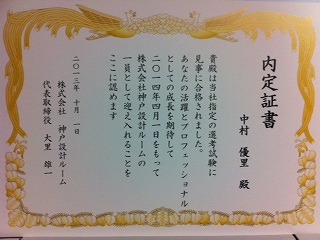 内定証書
中村 優里 殿
貴殿は当社指定の選考試験に
見事に合格されました。
あなたの活躍とプロフェッショナル
としての成長を期待して
二〇一四年四月一日をもって
株式会社神戸設計ルームの
一員として迎え入れることを
ここに認めます
二〇一三年 十月 一日
株式会社 神戸設計ルーム
代表取締役 大里 雄一